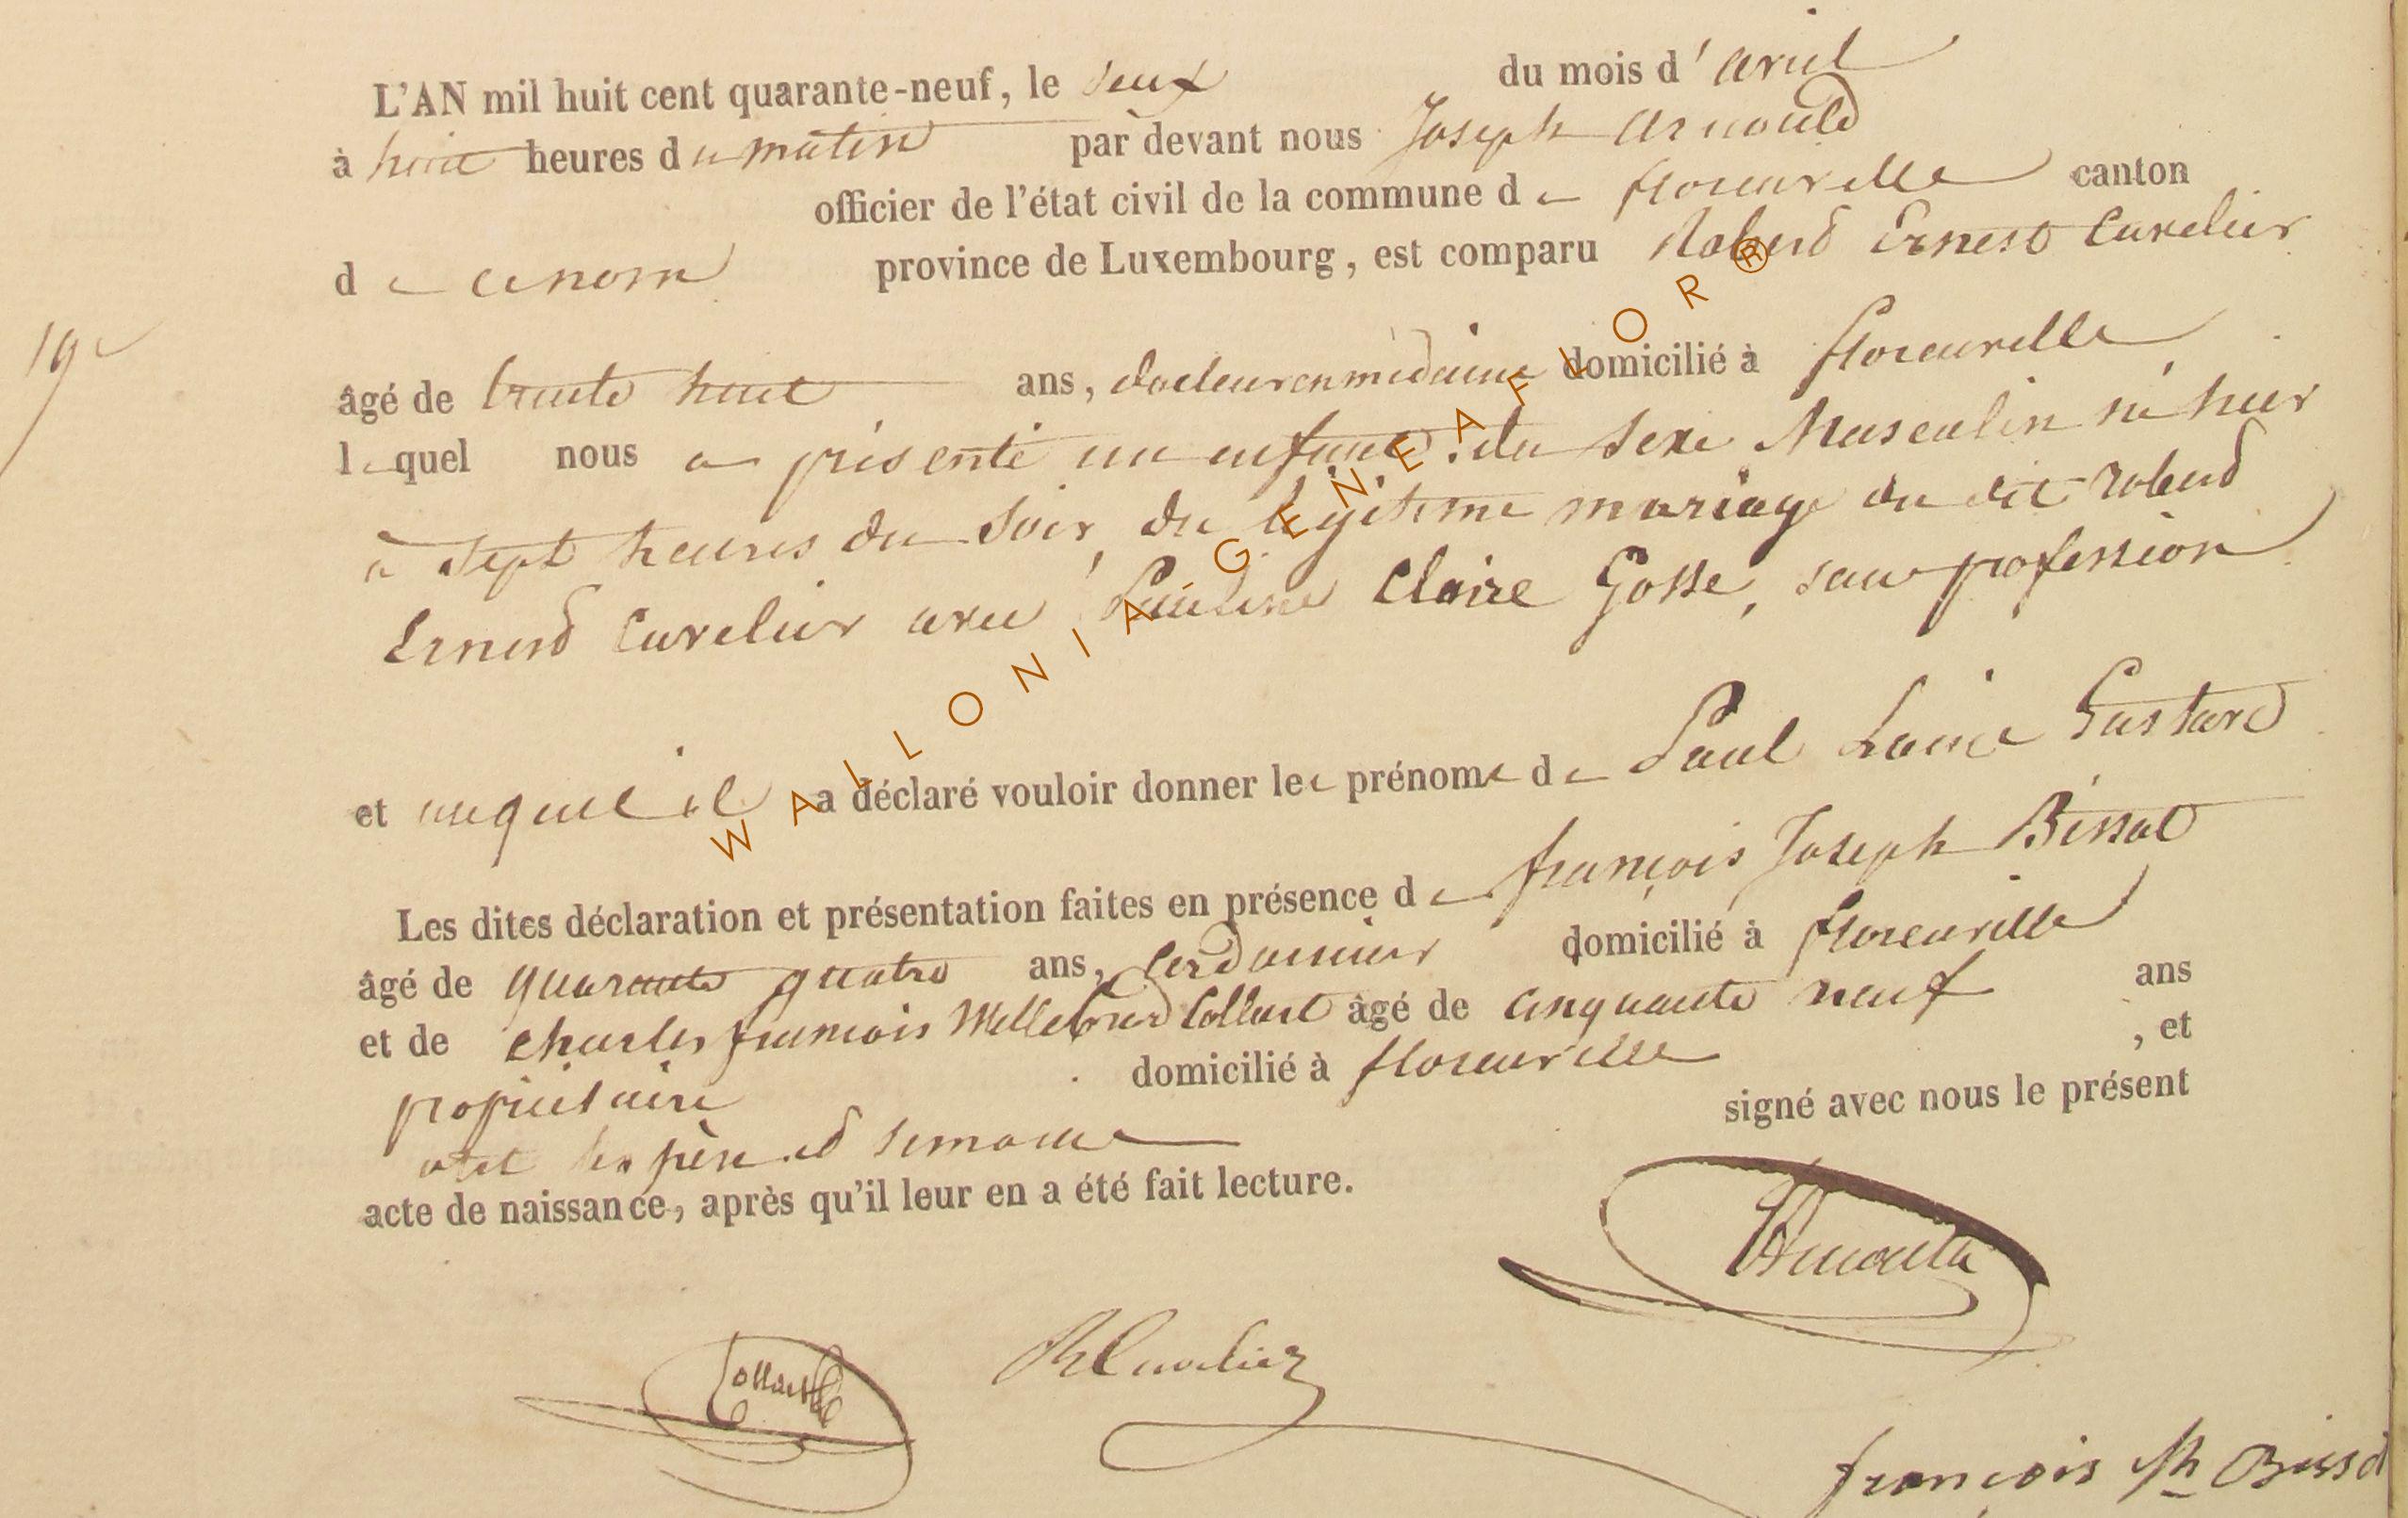 L'AN mil huit cent quarante-neuf, le deux du mois d'avril
à huit heures du matin par devant nous Joseph Arnould
officier de l'état civil de la commune de florenville canton
de ce nom province de Luxembourg, est comparu Robert Ernest Cuvelier
19e
âgé de trente huit ans, docteur en médecine domicilié à florenville
lequel nous a présenté un enfant du sexe Masculin né hier
à sept heures du soir, du légitime mariage du dit Robert
Ernest Cuvelier avec Pauline Claire Gosse, sans profession
et auquel il a déclaré vouloir donner les prénoms de Paul Louis Gustave
Les dites déclaration et présentation faites en présence de françois Joseph
âgé de quarante quatre ans, cordonnier domicilié à florenville
et de charles françois Willebrord Collart âgé de cinquante neuf ans
propriétaire domicilié à florenville, et
ont les père et témoins signé avec nous le présent
acte de naissance, après qu'il leur en a été fait lecture.
Arnould
Collart
R Cuvelier
françois
WALLONIA GENEAFLOR®